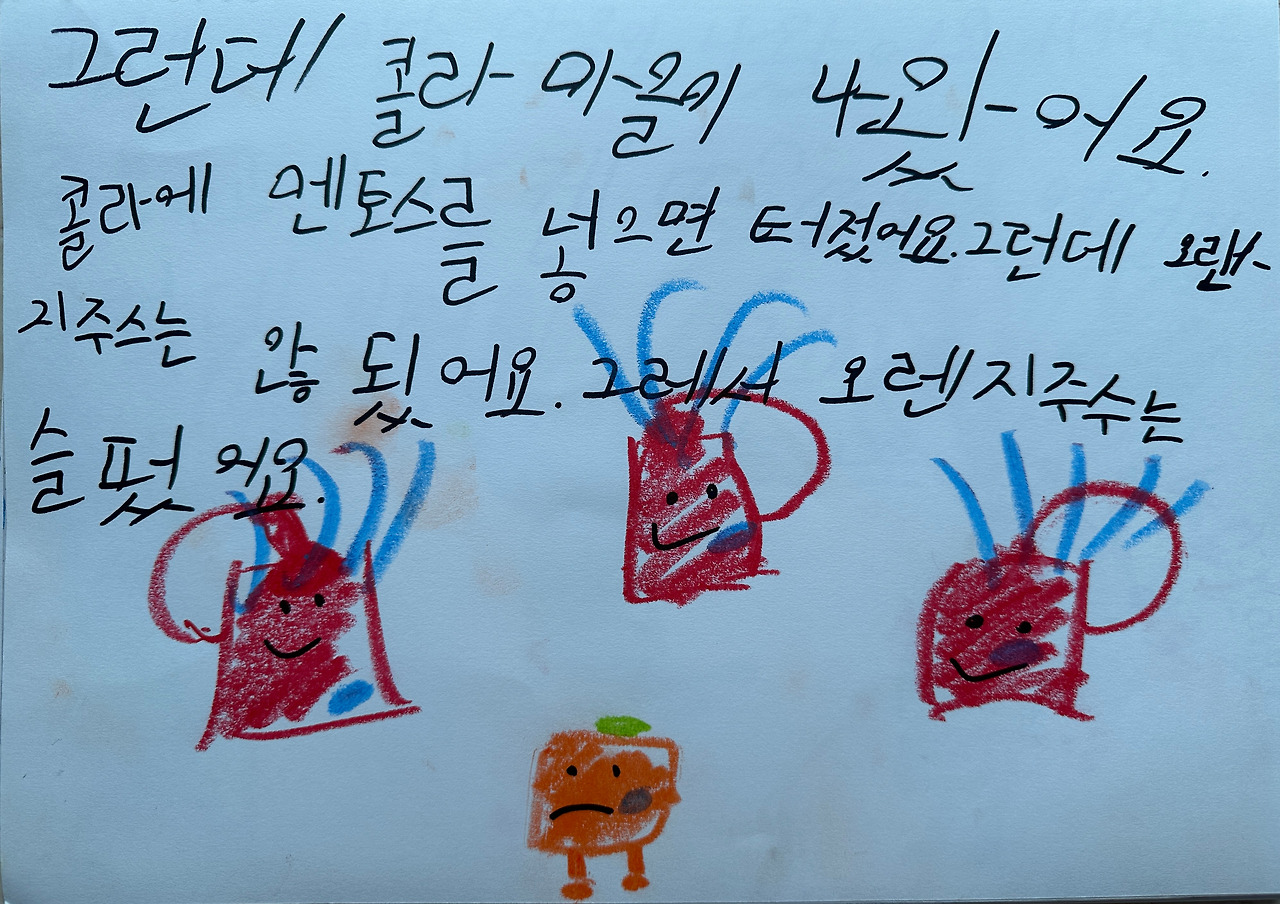 그런데 콜라 마을이 나왔어요.
콜라에 멘토스를 넣으면 터졌어요.그런데 오랜
지주스는 않 됬어요.그레서 오렌지주수는
슬펐어요.